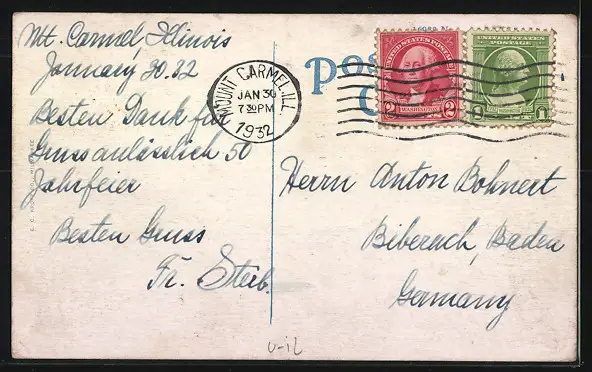 Mt. Carmel, Illinois
January 30. 32
Besten Dank für
Gruss anlässlich 50
Jahrfeier
Besten Gruss
Fr. Steib.
MOUNT CARMEL, ILL.
JAN 30
7 30 PM
1932
UNITED STATES POSTAGE
2 WASHINGTON 2
UNITED STATES
POSTAGE
1 1
Herrn Anton Bohnert
Biberach, Baden
Germany
U-IL